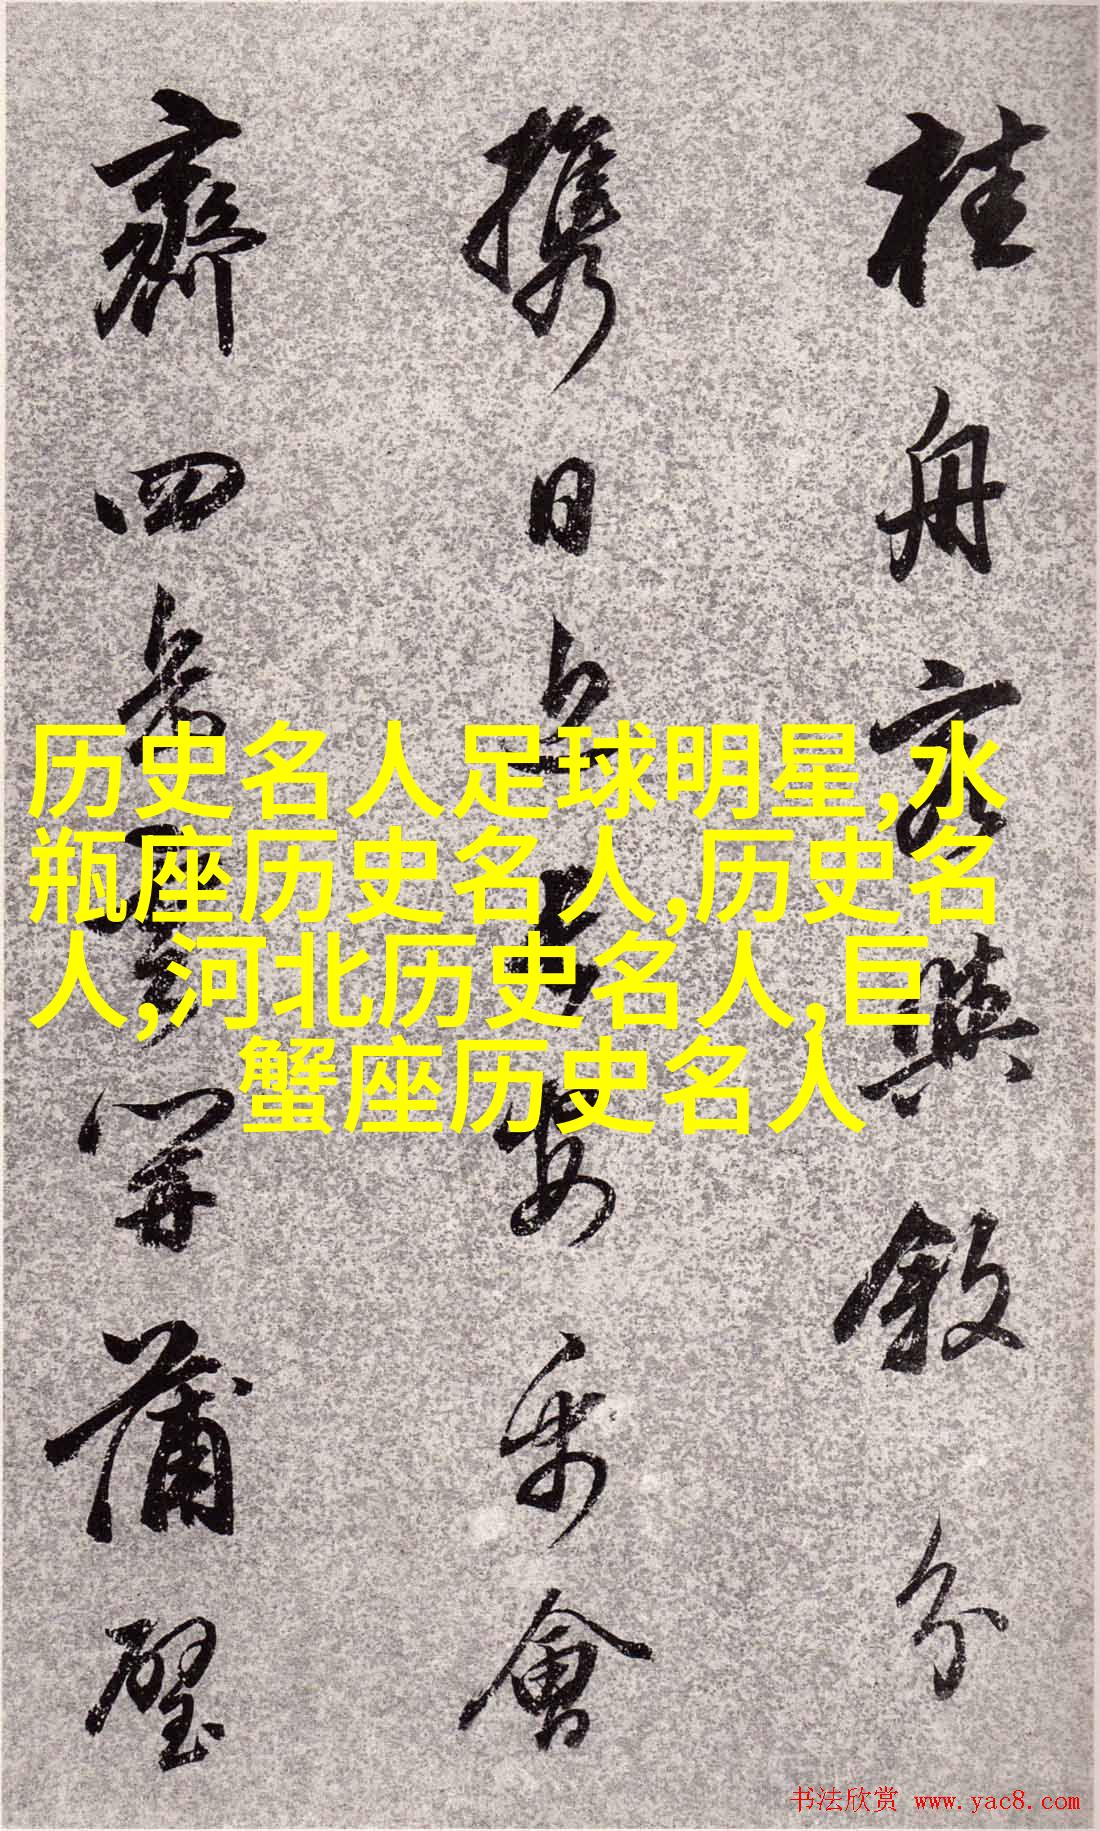 桂舟衮與敘分
攜日上
安乐會
齊四
开蒲璧
历史名人足球明星,水
瓶座历史名人,历史名
人,河北历史名人,巨
蟹座历史名人
书法欣赏 www.yac8.com